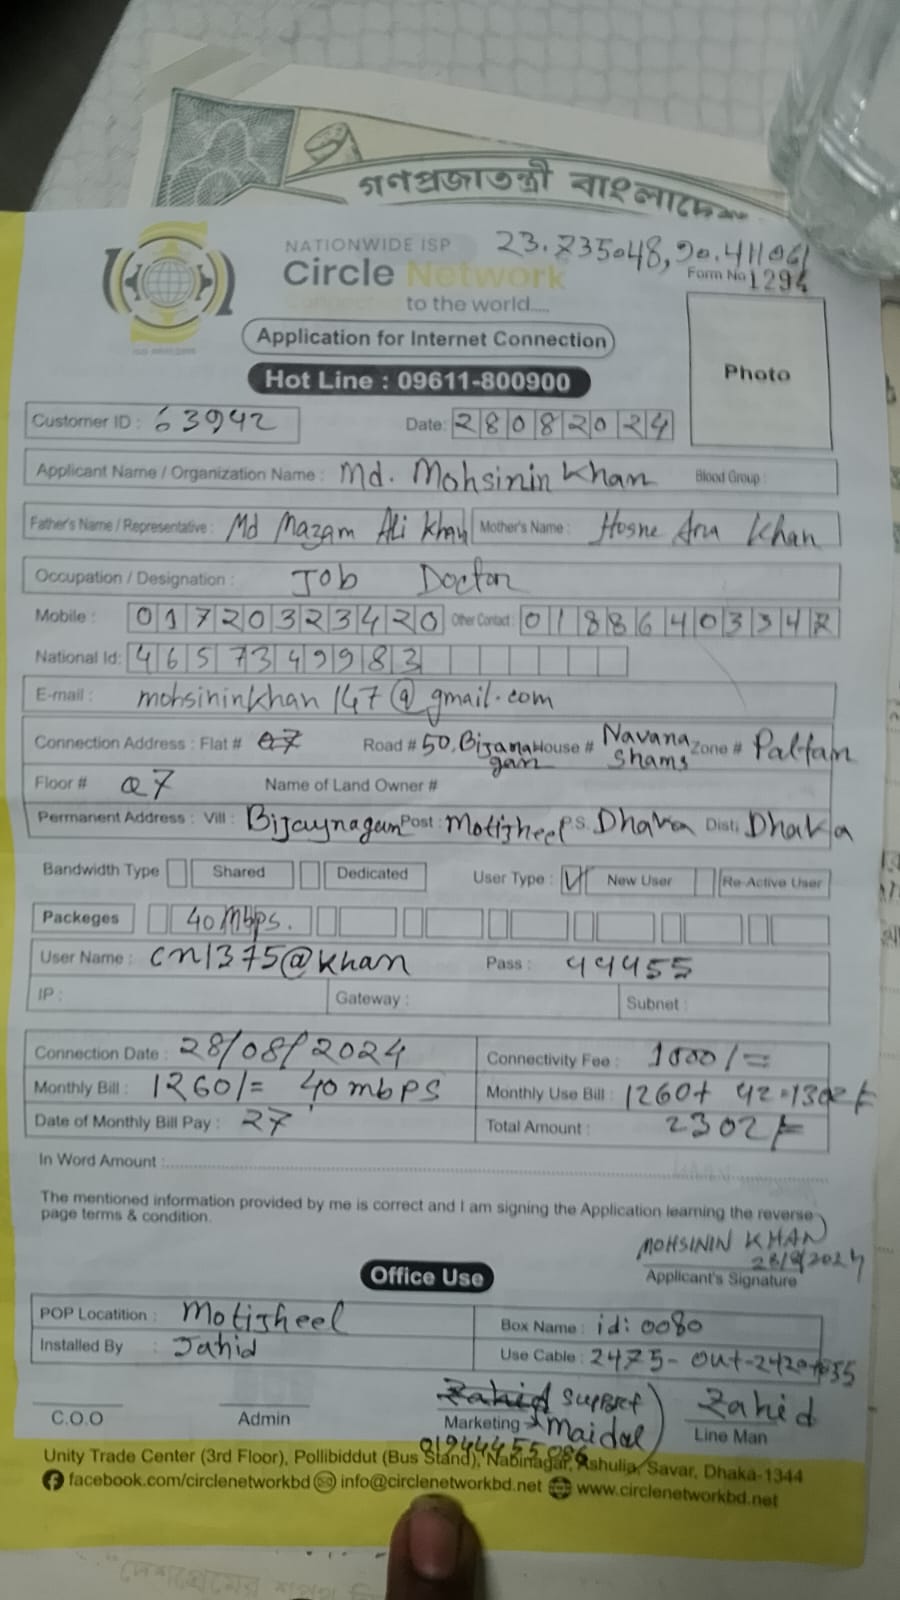 গণপ্রজাতন্ত্রী বাংলাদেশ
23.735048,90.411061
NATIONWIDE ISP
Form No 1294
Circle Network
Connected to the world.....
Application for Internet Connection
Photo
Hot Line : 09611-800900
Customer ID : 63942 Date: 28082024
Applicant Name / Organization Name : Md. Mohsinin Khan Blood Group :
Father's Name / Representative : Md Mazam Ali Khan Mother's Name : Hosne Ara Khan
Occupation / Designation : Job Doctor
Mobile : 01720323420 Other Contact : 01886403342
National Id: 4657349983
E-mail : mohsininkhan147@gmail.com
Connection Address : Flat # Road # 50, Bijanagan House # Navana Shams Zone # Paltan
Floor # 07 Name of Land Owner #
Permanent Address : Vill : Bijaynagar Post : Motijheel P.S. Dhaka Dist. Dhaka
Bandwidth Type Shared Dedicated User Type : New User Re-Active User
Packeges 40 Mbps.
User Name : cn1375@khan Pass : 44455
IP : Gateway : Subnet :
Connection Date : 28/08/2024 Connectivity Fee : 1000/=
Monthly Bill : 1260/= 40 mbps Monthly Use Bill : 1260+ 42=1302/=
Date of Monthly Bill Pay : 27 Total Amount : 2302/=
In Word Amount :
The mentioned information provided by me is correct and I am signing the Application learning the reverse
page terms & condition.
MOHSININ KHAN
28/8/2024
Applicant's Signature
Office Use
POP Locatition : Motijheel Box Name : id: 0080
Installed By : Jahid Use Cable : 2475- out-2420
Support Zahid
C.O.O Admin Marketing Maidal Line Man
Unity Trade Center (3rd Floor), Pollibiddut (Bus Stand), Nabinagar, Ashulia, Savar, Dhaka-1344
facebook.com/circlenetworkbd info@circlenetworkbd.net www.circlenetworkbd.net